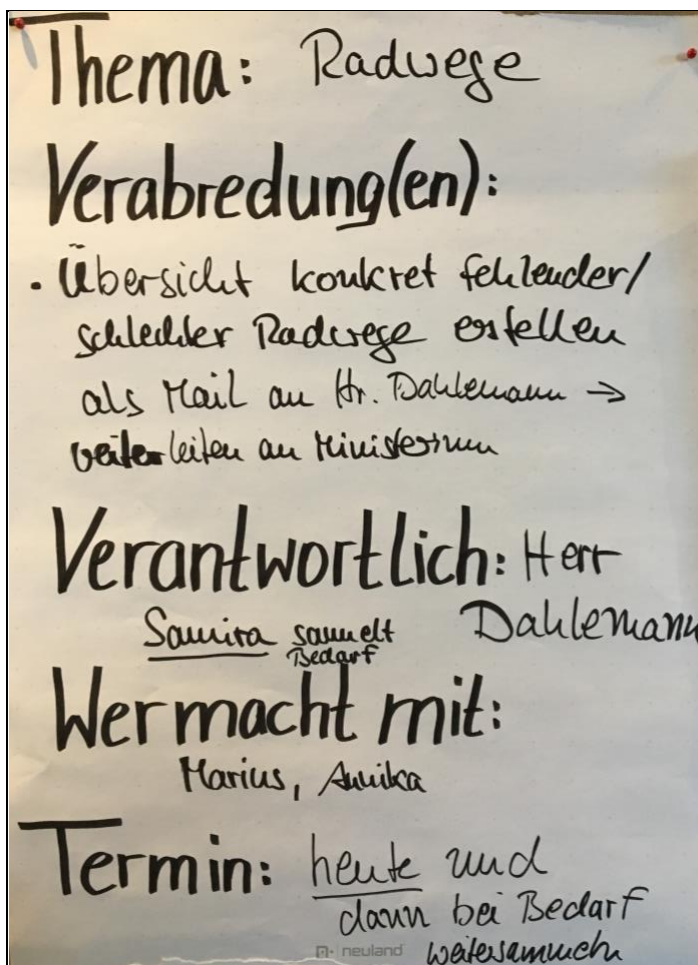 Thema: Radwege
Verabredung(en):
• Übersicht konkret fehlender/
schlechter Radwege erstellen
als Mail an Hr. Dahlemann →
weiterleiten an Ministerium
Verantwortlich: Herr
Dahlemann
Samira sammelt
Bedarf
Wer macht mit:
Marius, Annika
Termin: heute und
dann bei Bedarf
weitersammeln
neuland